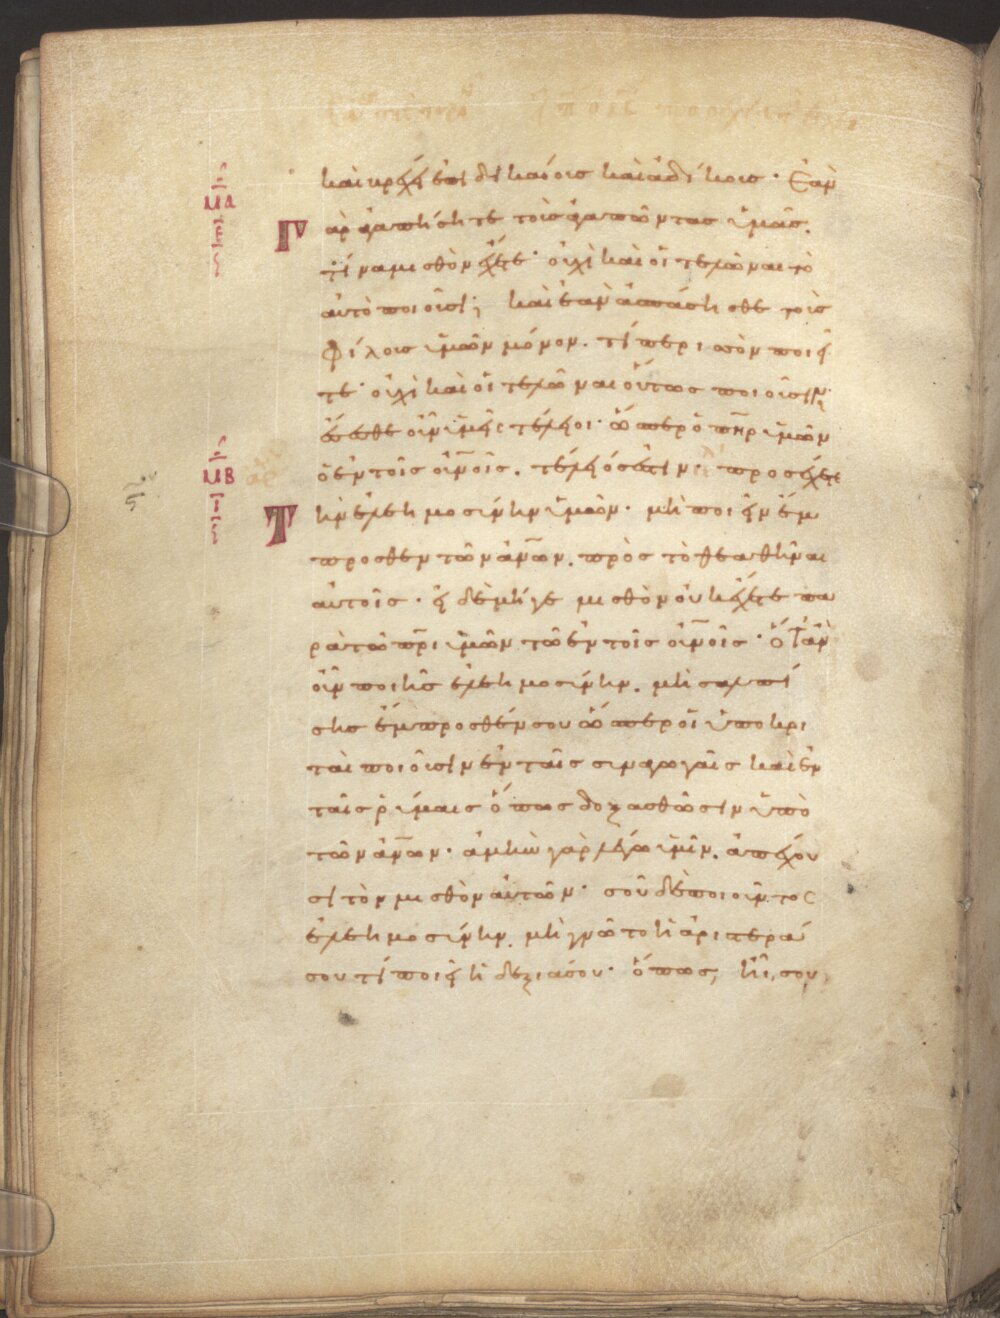 καὶ βρέχει ἐπὶ δικαίους καὶ ἀδίκους · Ἐὰν
Γὰρ ἀγαπήσητε τοὺς ἀγαπῶντας ὑμᾶς.
τίνα μισθὸν ἔχετε · οὐχὶ καὶ οἱ τελῶναι τὸ
αὐτὸ ποιοῦσι; καὶ ἐὰν ἀσπάσησθε τοὺς
φίλους ὑμῶν μόνον. τί περισσὸν ποιεῖ
τε · οὐχὶ καὶ οἱ τελῶναι οὕτως ποιοῦσιν;
ἔσεσθε οὖν ὑμεῖς τέλειοι · ὥσπερ ὁ πηρ ὑμῶν
ὁ ἐν τοῖς οὐνοις. τέλειός ἐστιν · προσέχετε
Τὴν ἐλεημοσύνην ὑμῶν · μὴ ποιεῖν ἔμ
προσθεν τῶν ἀνων. πρὸς τὸ θεαθῆναι
αὐτοῖς · εἰ δὲ μήγε μισθὸν οὐκ ἔχετε πα
ρὰ τῶ πρι ὑμῶν τῶ ἐν τοῖς οὐνοις · Ὅταν
οὖν ποιῆς ἐλεημοσύνην. μὴ σαλπί
σης ἔμπροσθέν σου ὥσπερ οἱ ὑποκρι
ταὶ ποιοῦσιν ἐν ταῖς συναγωγαῖς καὶ ἐν
ταῖς ῥύμαις ὅπως δοξασθῶσιν ὑπὸ
τῶν ἀνων · ἀμὴν γὰρ λέγω ὑμῖν. ἀπέχου
σι τὸν μισθὸν αὐτῶν · σοῦ δὲ ποιοῦντος
ἐλεημοσύνην. μὴ γνῶτο ἡ ἀριστερά
σου τί ποιεῖ ἡ δεξιά σου · ὅπως, ἦ, σου
ΜΑ
ΜΒ